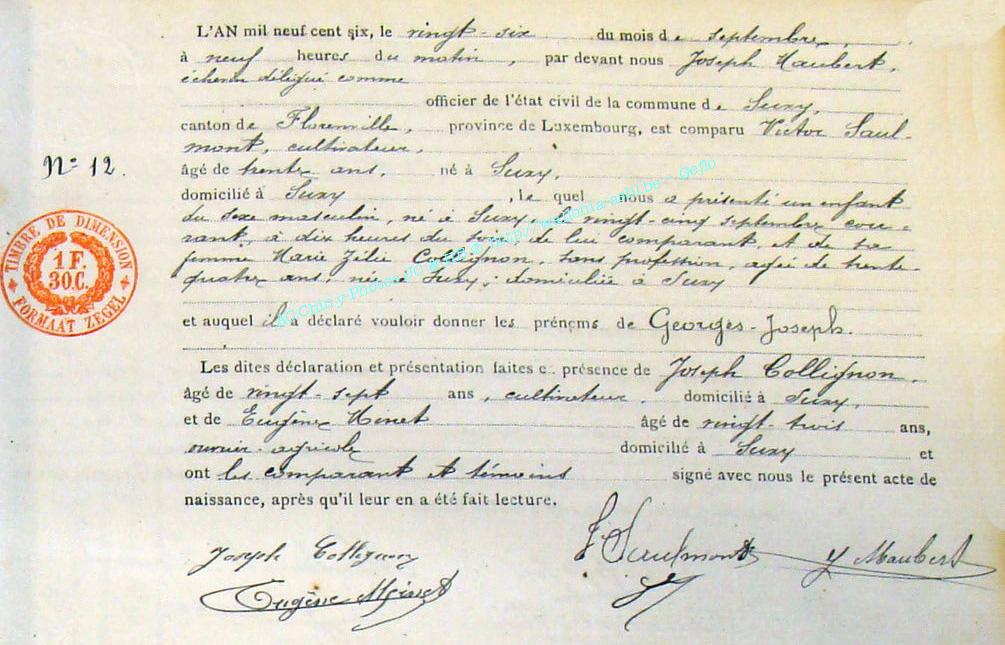 L'AN mil neuf cent six, le vingt-six du mois de septembre,
à neuf heures du matin, par devant nous Joseph Maubert,
échevin délégué comme
officier de l'état civil de la commune de Suxy,
canton de Florenville, province de Luxembourg, est comparu Victor Saul-
mont, cultivateur,
N° 12.
âgé de trente ans, né à Suxy,
domicilié à Suxy, le quel nous a présenté un enfant
du sexe masculin, né à Suxy, le vingt-cinq septembre cou-
rant, à dix heures du soir, de lui comparant, et de sa
femme Marie Zélie Collignon, sans profession, agée de trente-
quatre ans, née à Suxy, domiciliée à Suxy
TIMBRE DE DIMENSION
1 F.
30.C.
FORMAAT ZEGEL
et auquel il a déclaré vouloir donner les prénoms de Georges-Joseph.
Les dites déclaration et présentation faites en présence de Joseph Collignon,
âgé de vingt-sept ans, cultivateur, domicilié à Suxy,
et de Eugène Minet âgé de vingt-trois ans,
ouvrier agricole domicilié à Suxy et
ont les comparant et témoins signé avec nous le présent acte de
naissance, après qu'il leur en a été fait lecture.
Joseph Collignon
V. Saulmont
J Maubert
Eugène Minet